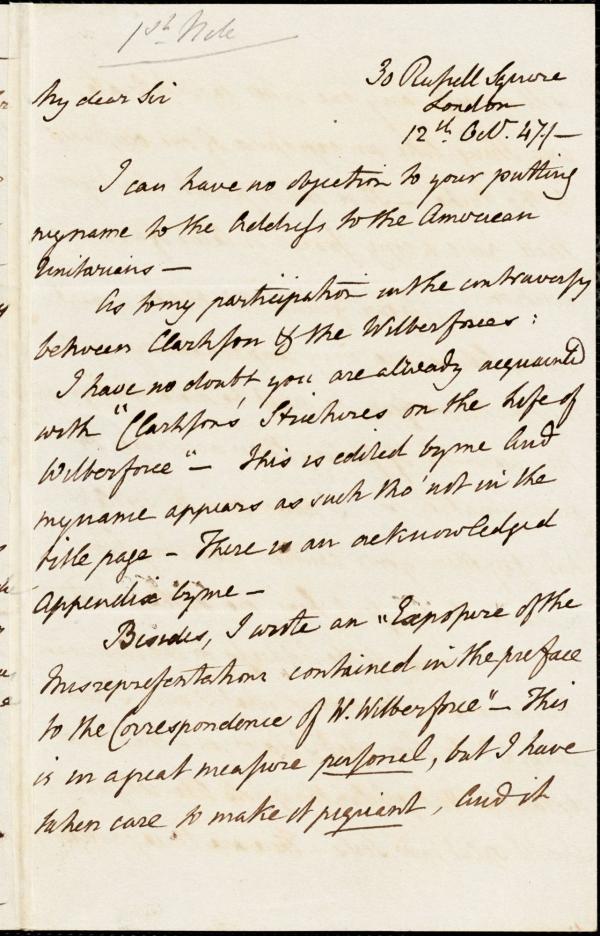 1st Note
30 Russell Square
My dear Sir
London
12th Oct. 47/-
I can have no objection to your putting
my name to the Address to the American
Unitarians —
As to my participation in the controversy
between Clarkson & the Wilberforces :
I have no doubt you are already acquainted
with "Clarkson's Strictures on the Life of
Wilberforce" — This is edited by me and
my name appears as such tho' not in the
title page — There is an acknowledged
Appendix by me —
Besides, I wrote an "Exposure of the
misrepresentations contained in the preface
to the Correspondence of W. Wilberforce" — This
is in a great measure personal, but I have
taken care to make it piquant, and it